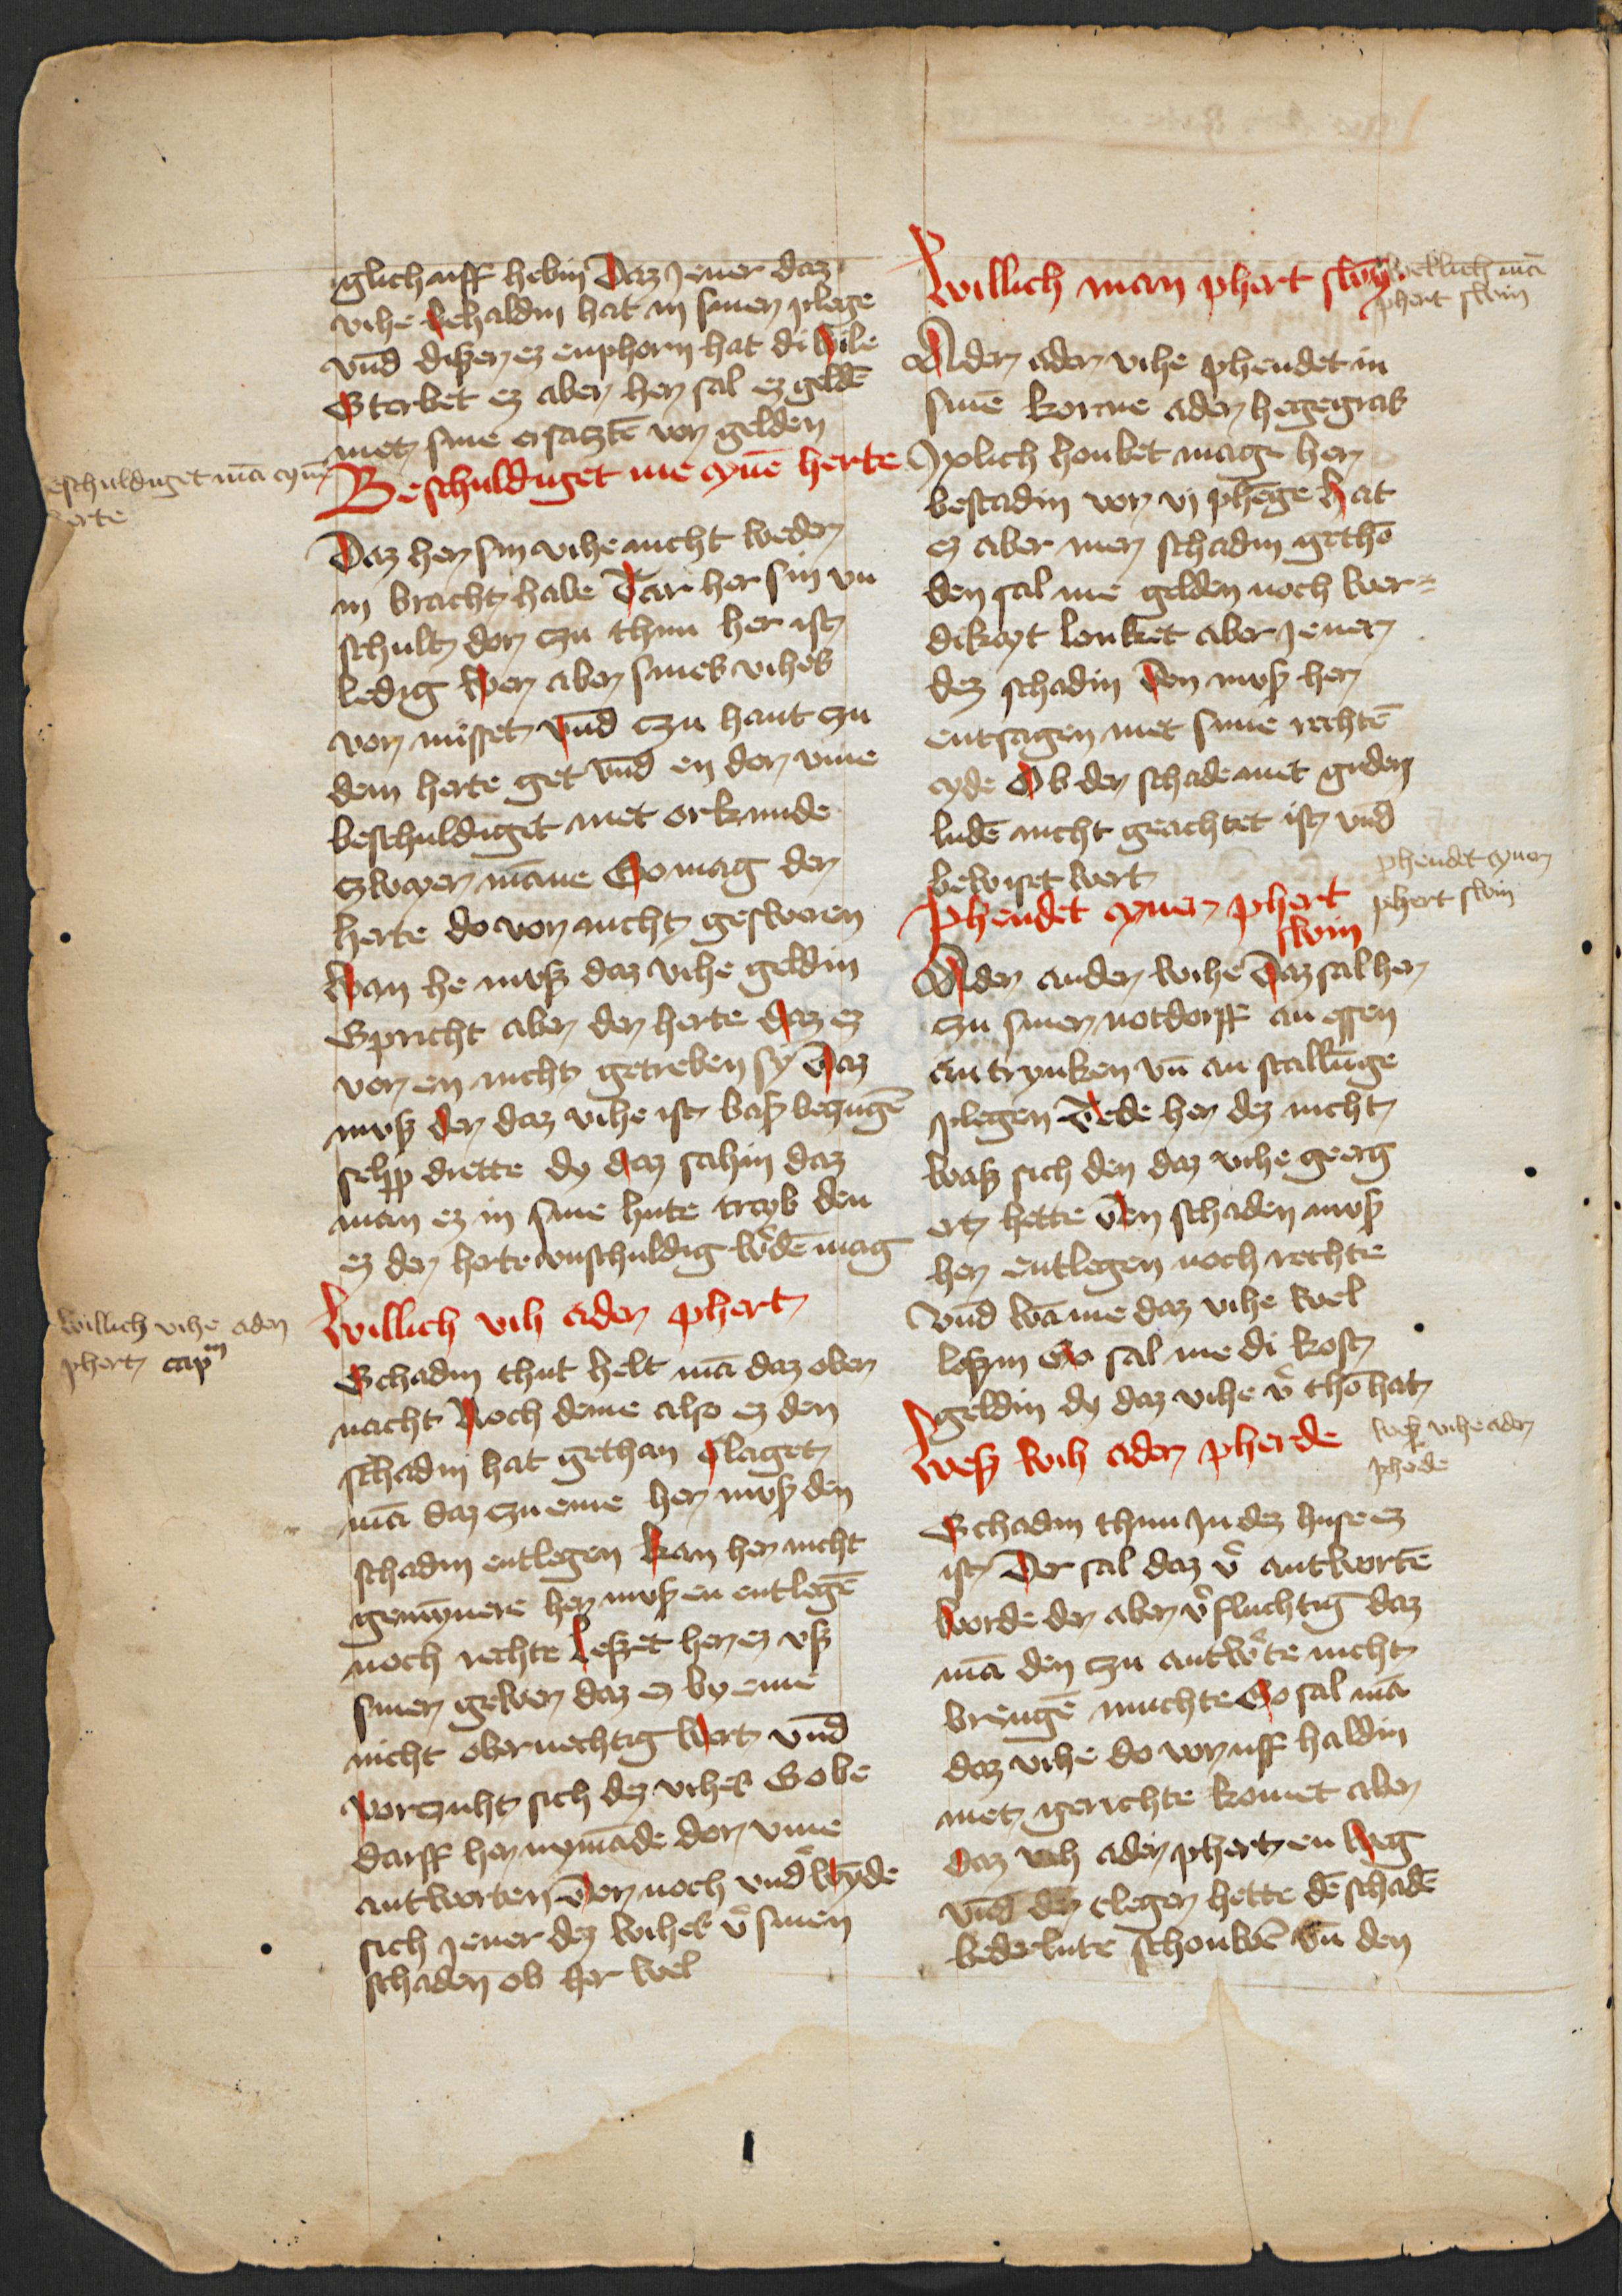 glich uff hebin Daz Jener daz
vihe behaldin hat in siner plege
vnd diser ez enphorn hat di wile
Sterbet ez aber her sal ez geldē
met sime ersaczte vor gelden
Beschuldiget me eynē herte
Daz her sin vihe nicht weder
in bracht habe Tar her sin vn
schult dor czu thun her ist
ledig Wer aber sines vihes
vor misset vnd czu hant czu
dem herte get vnd en dor vme
beschuldiget met orkunde
czweyer māne So mag der
herte do vor nicht gesweren
Wan he mvß daz vihe geldin
Spricht aber der herte daz ez
vor en nicht getreben sy Daz
mvß der daz vihe ist baß beczugē
selp drette dy daz sahin daz
man ez in sine hute treyb den
ez der herte vnschuldig w̄dē mag
Willich vih ader phert
Schadin thut helt mā daz ober
nacht Noch deme also ez den
schadin hat gethan Claget
mā daz czu eme her mvß den
schadin entlegen kan her nicht
gemynere her mvß en entlegē
noch rechte Leßet her ez vß
siner gewer daz ez by eme
nicht obernechtig wert vnd
vorczuht sich dez vihes So be
darff her nymāde dor vme
antworten Dor noch vnd̄ wyde
sich jener dez wihes v̄ sinen
schaden ob her wel
Willich man phert swyn
Ader ader vihe phendet in
sinē korne ader hegegras
Jxlich houbet mage her
bestadin vor vj phēge hat
ez aber mer schadin gethō
den sal me gelden noch wer=
dikeyt louket aber jener
dez schadin Den mvß her
entsagen met sime rechtē
eyde Ob der schade met guden
ludē nicht geachtet ist vnd
bewiset wert
Phendet eyner phert
swin
Ader ander wihe Daz sal her
czu siner notdorff an essen
an trynken vn̄ an stallūge
plegen Tede her dez nicht
waß sich den daz vihe geerg
ert hette Den schaden mvß
her entlegen noch rechte
Vnd wā me daz vihe wel
loßin So sal me di kost
geldin dy daz vihe v̄ thō hat
Weß wih ader pherde
Schadin thun In dez huse ez
ist Der sal daz v̄ antwortē
Worde der aber v̄fluchtig daz
mā den czu antw̄te nicht
brengē muchte So sal mā
daz vihe do vor uff haldin
met gerichte komet aber
daz vih ader phert en weg
vnd der cleger hette dē schadē
bederlute schouwē vn̄ den
eschuldiget mā eynē
herte
Willich vihe ader
phert cap^m
Weklich mā
phert swin
phendet eyner
phert swin
weß vihe ader
pherde